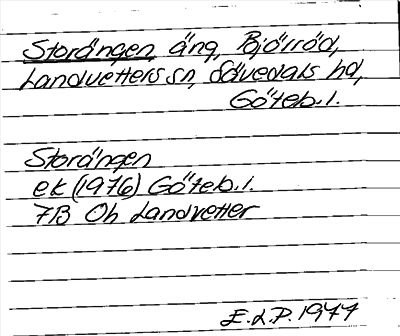 Storängen, äng, Björröd,
Landvetters sn, Sävedals hd,
Göteb. l.
Storängen
ek (1976) Göteb. l.
7B Oh Landvetter
E.L.P. 1977